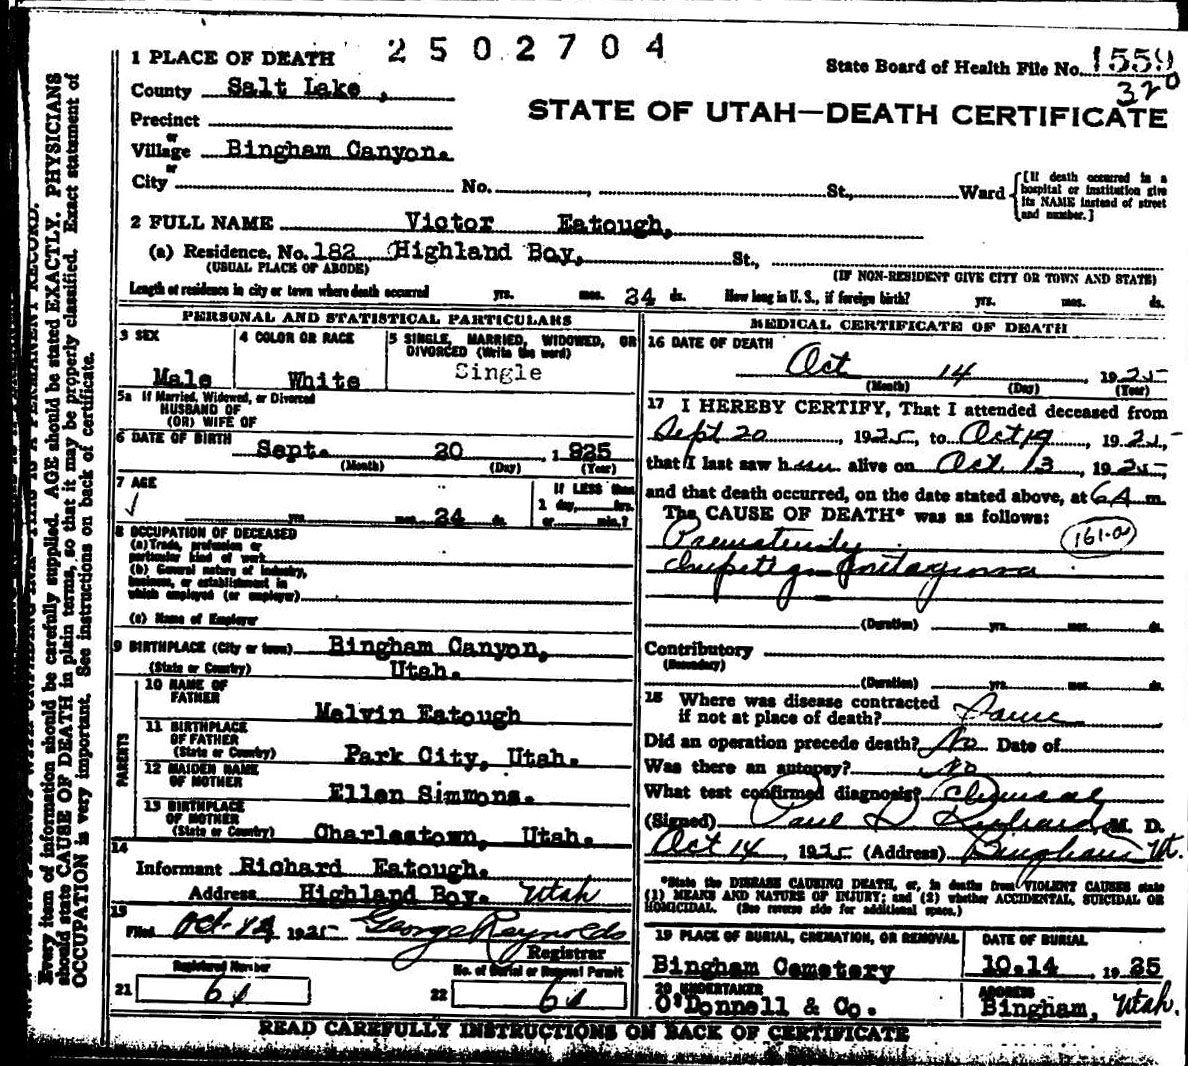 2502704
1 PLACE OF DEATH
State Board of Health File No. 1559
320
County Salt Lake,
STATE OF UTAH—DEATH CERTIFICATE
Precinct
or
Village Bingham Canyon.
or
City No. , St., Ward
[If death occurred in a hospital or institution give its NAME instead of street and number.]
2 FULL NAME Victor Eatough,
(a) Residence, No. 182 Highland Boy, St.,
(USUAL PLACE OF ABODE) (IF NON-RESIDENT GIVE CITY OR TOWN AND STATE)
Length of residence in city or town where death occurred yrs. mos. 24 ds. How long in U. S., if foreign birth? yrs. mos. ds.
PERSONAL AND STATISTICAL PARTICULARS
3 SEX
Male
4 COLOR OR RACE
White
5 SINGLE, MARRIED, WIDOWED, OR DIVORCED (Write the word)
Single
5a If Married, Widowed, or Divorced
HUSBAND OF
(OR) WIFE OF
6 DATE OF BIRTH Sept. 20, 1925
(Month) (Day) (Year)
7 AGE
yrs. mos. 24 ds.
If LESS than
1 day, hrs.
or min.?
8 OCCUPATION OF DECEASED
(a) Trade, profession or
particular kind of work
(b) General nature of industry,
business, or establishment in
which employed (or employer)
(c) Name of Employer
9 BIRTHPLACE (City or town) Bingham Canyon,
(State or Country) Utah.
PARENTS
10 NAME OF
FATHER
Melvin Eatough
11 BIRTHPLACE
OF FATHER
(State or Country) Park City, Utah.
12 MAIDEN NAME
OF MOTHER
Ellen Simmons.
13 BIRTHPLACE
OF MOTHER
(State or Country) Charlestown, Utah.
14
Informant Richard Eatough.
Address Highland Boy. Utah
15
Filed Oct. 1925 George Reynolds
Registrar
Registered Number
21 61
No. of Burial or Removal Permit
22 61
MEDICAL CERTIFICATE OF DEATH
16 DATE OF DEATH
Oct 14, 1925
(Month) (Day) (Year)
17 I HEREBY CERTIFY, That I attended deceased from
Sept 20, 1925, to Oct 14, 1925,
that I last saw him alive on Oct. 13, 1925,
and that death occurred, on the date stated above, at 6 A m.
The CAUSE OF DEATH* was as follows:
Prematurity
161-a
Impetigo
(Duration) yrs. mos. ds.
Contributory
(Secondary)
(Duration) yrs. mos. ds.
18 Where was disease contracted
if not at place of death?
Did an operation precede death? No Date of
Was there an autopsy? No
What test confirmed diagnosis? Clinical
(Signed) Paul S. Richards M. D.
Oct 14, 1925 (Address) Bingham Ut.
*State the DISEASE CAUSING DEATH, or, in deaths from VIOLENT CAUSES state
(1) MEANS AND NATURE OF INJURY; and (2) whether ACCIDENTAL, SUICIDAL OR
HOMICIDAL. (See reverse side for additional space.)
19 PLACE OF BURIAL, CREMATION, OR REMOVAL
Bingham Cemetery
DATE OF BURIAL
10.14, 1925
20 UNDERTAKER
O'Donnell & Co.
ADDRESS
Bingham, Utah.
READ CAREFULLY INSTRUCTIONS ON BACK OF CERTIFICATE
THIS IS A PERMANENT RECORD.
Every item of information should be carefully supplied. AGE should be stated EXACTLY. PHYSICIANS
should state CAUSE OF DEATH in plain terms, so that it may be properly classified. Exact statement of
OCCUPATION is very important. See instructions on back of certificate.